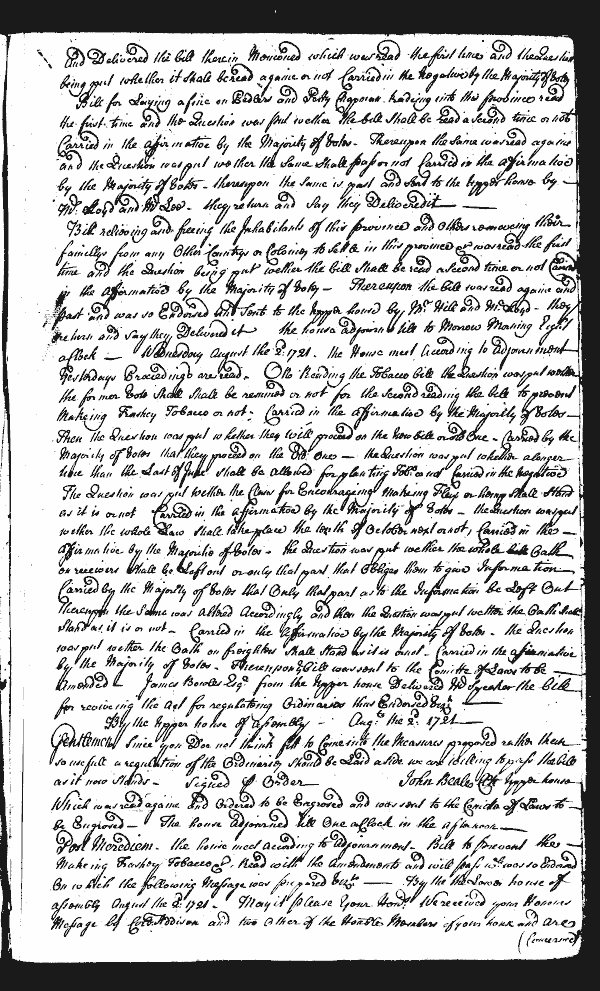 And Delivered the bill therein Menconed which was read the first time and the Question
being put whether it Shall be read againe or not Carried in the Negative by the Majority of Votes
Bill for Laying a fine on Pedlers and Petty Chapmen trading into this province read
the first time and the Question was put wether the bill Shall be read a Second time or not
Carried in the affirmative by the Majority of Votes - Thereupon the Same was read againe
and the Question was put wether the Same Shall pass or not Carried in the affirmative
by the Majority of Votes - thereupon the Same is past and Sent to the upper house by
Mr. Loyd and Mr. Lee - they return and Say they Delivered it
Bill relieving and freeing the Inhabitants of this province and Others removeing their
familys from any Other Country or Colony to Settle in this province &c was read the first
time and the Question being put wether the bill Shall be read a Second time or not Carried
in the Affirmative by the Majority of Votes - Thereupon the bill was read againe and
past and was so Endorsed and Sent to the upper house by Mr. Hill and Mr. Loyd - they
return and Say they Delivered it the house adjourns till to Morrow Morning Eight
aClock - Wednesday August the 2d. 1721. the House meet According to Adjournment
Yesterdays Proceedings are read. On Reading the Tobacco bill the Question was put wether
the former Vote Shall Shall be remined or not for the Second reading the bill to prevent
Makeing Trashey Tobacco or not - Carried in the affirmative by the Majority of Votes -
Then the Question was put whether they will proceed on the New bill or old One - Carried by the
Majority of Votes that they proceed on the Old One - the Question was put whether a longer
time than the Last of June Shall be allowed for planting Tobco or not Carried in the Negative
The Question was put wether the Claus for Encourageing Makeing Flax or hemp Shall Stand
as it is or not Carried in the affirmative by the Majority of Votes - the Question was put
wether the whole Law Shall take place the tenth of October next or not, Carried in the
Affirmative by the Majoritie of Votes - the Question was put wether the whole Oath
on receivers Shall be Left out or only that part that Obliges them to give Information
Carried by the Majority of Votes that Only that part as to the Information be Left Out
thereupon the Same was altred Accordingly and then the Question was put wether the Oath Shall
Stand as it is or not - Carried in the Affirmative by the Majority of Votes - the Question
was put wether the Oath on freighters Shall Stand as it is or not - Carried in the affirmative
by the Majority of Votes - Thereupon bill was sent to the Comitte of Laws to be
Amended James Bowles Esqr. from the upper house Delivered Mr. Speaker the bill
for reviveing the Act for regulating Ordinaries thus Endorsed
By the upper house of assembly Augt. the 2d. 1721
Gentlemen Since you Doe not think fitt to Come into the Measures proposed rather then
so usefull a regulation of the Ordinaries Should be Laid aside we are willing to pass the bill
as it now Stands - Signed p Order John Beale Clk upper house
Which was read againe and Ordered to be Engrosed and was sent to the Comitte of Laws to
be Engrosed - The house adjourned till One aClock in the afternoon
Post Meridiem - the house meet according to Adjournment - Bill to prevent the
Makeing Trashey Tobacco &c. Read with the Amendments and will pass wch. was so Endorsed
On which the following Message was prepared By the Lower house of
assembly August the 2d. 1721 - May it please Your Honrs. We received your Honours
Message by Coll. Addison and two Other of the Honble Members of your house and are
(Concerned